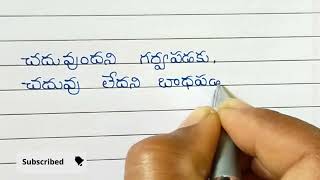 చదువుందని గర్వపడకు,
చదువు లేదని బాధపడ
Subscribed